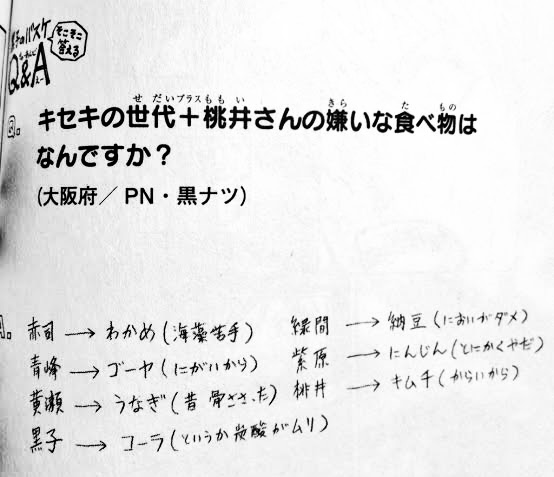 黒子のバスケ
そこそこ
答える
Q&A
Q.
キセキの世代+桃井さんの嫌いな食べ物は
なんですか?
(大阪府/PN・黒ナツ)
A.
赤司→わかめ(海藻苦手)
青峰→ゴーヤ(にがいから)
黄瀬→うなぎ(昔骨ささった)
黒子→コーラ(というか炭酸がムリ)
緑間→納豆(においがダメ)
紫原→にんじん(とにかくやだ)
桃井→キムチ(からいから)